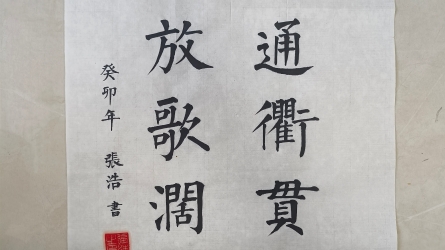 通衢贯
放歌濶
癸卯年 張浩書